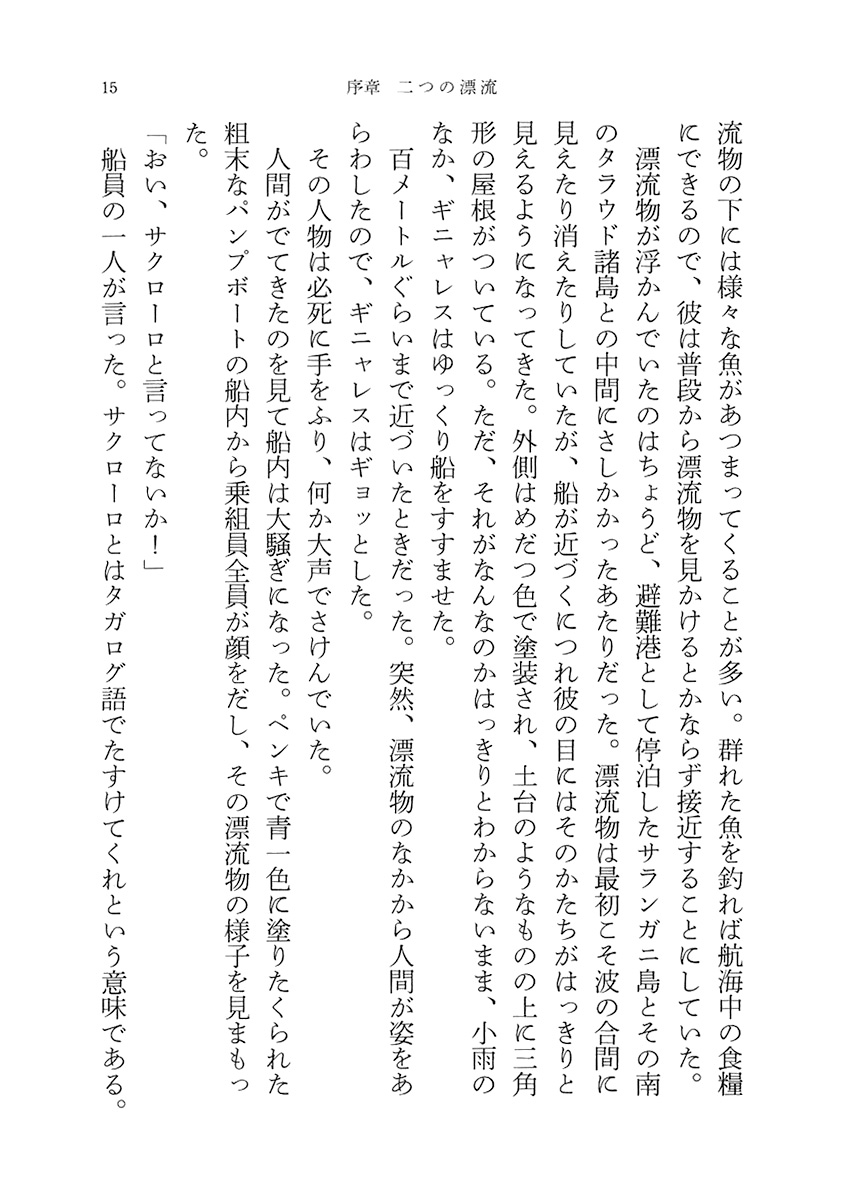 15
序章　二つの漂流
流物の下には様々な魚があつまってくることが多い。群れた魚を釣れば航海中の食糧
にできるので、彼は普段から漂流物を見かけるとかならず接近することにしていた。
　漂流物が浮かんでいたのはちょうど、避難港として停泊したサランガニ島とその南
のタラウド諸島との中間にさしかかったあたりだった。漂流物は最初こそ波の合間に
見えたり消えたりしていたが、船が近づくにつれ彼の目にはそのかたちがはっきりと
見えるようになってきた。外側はめだつ色で塗装され、土台のようなものの上に三角
形の屋根がついている。ただ、それがなんなのかはっきりとわからないまま、小雨の
なか、ギニャレスはゆっくり船をすすませた。
　百メートルぐらいまで近づいたときだった。突然、漂流物のなかから人間が姿をあ
らわしたので、ギニャレスはギョッとした。
　その人物は必死に手をふり、何か大声でさけんでいた。
　人間がでてきたのを見て船内は大騒ぎになった。ペンキで青一色に塗りたくられた
粗末なパンプボートの船内から乗組員全員が顔をだし、その漂流物の様子を見まもっ
た。
「おい、サクローロと言ってないか！」
　船員の一人が言った。サクローロとはタガログ語でたすけてくれという意味である。